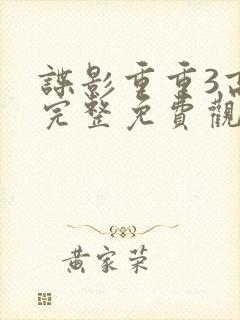 諜影重重3,高
完整免費觀
黃家荣